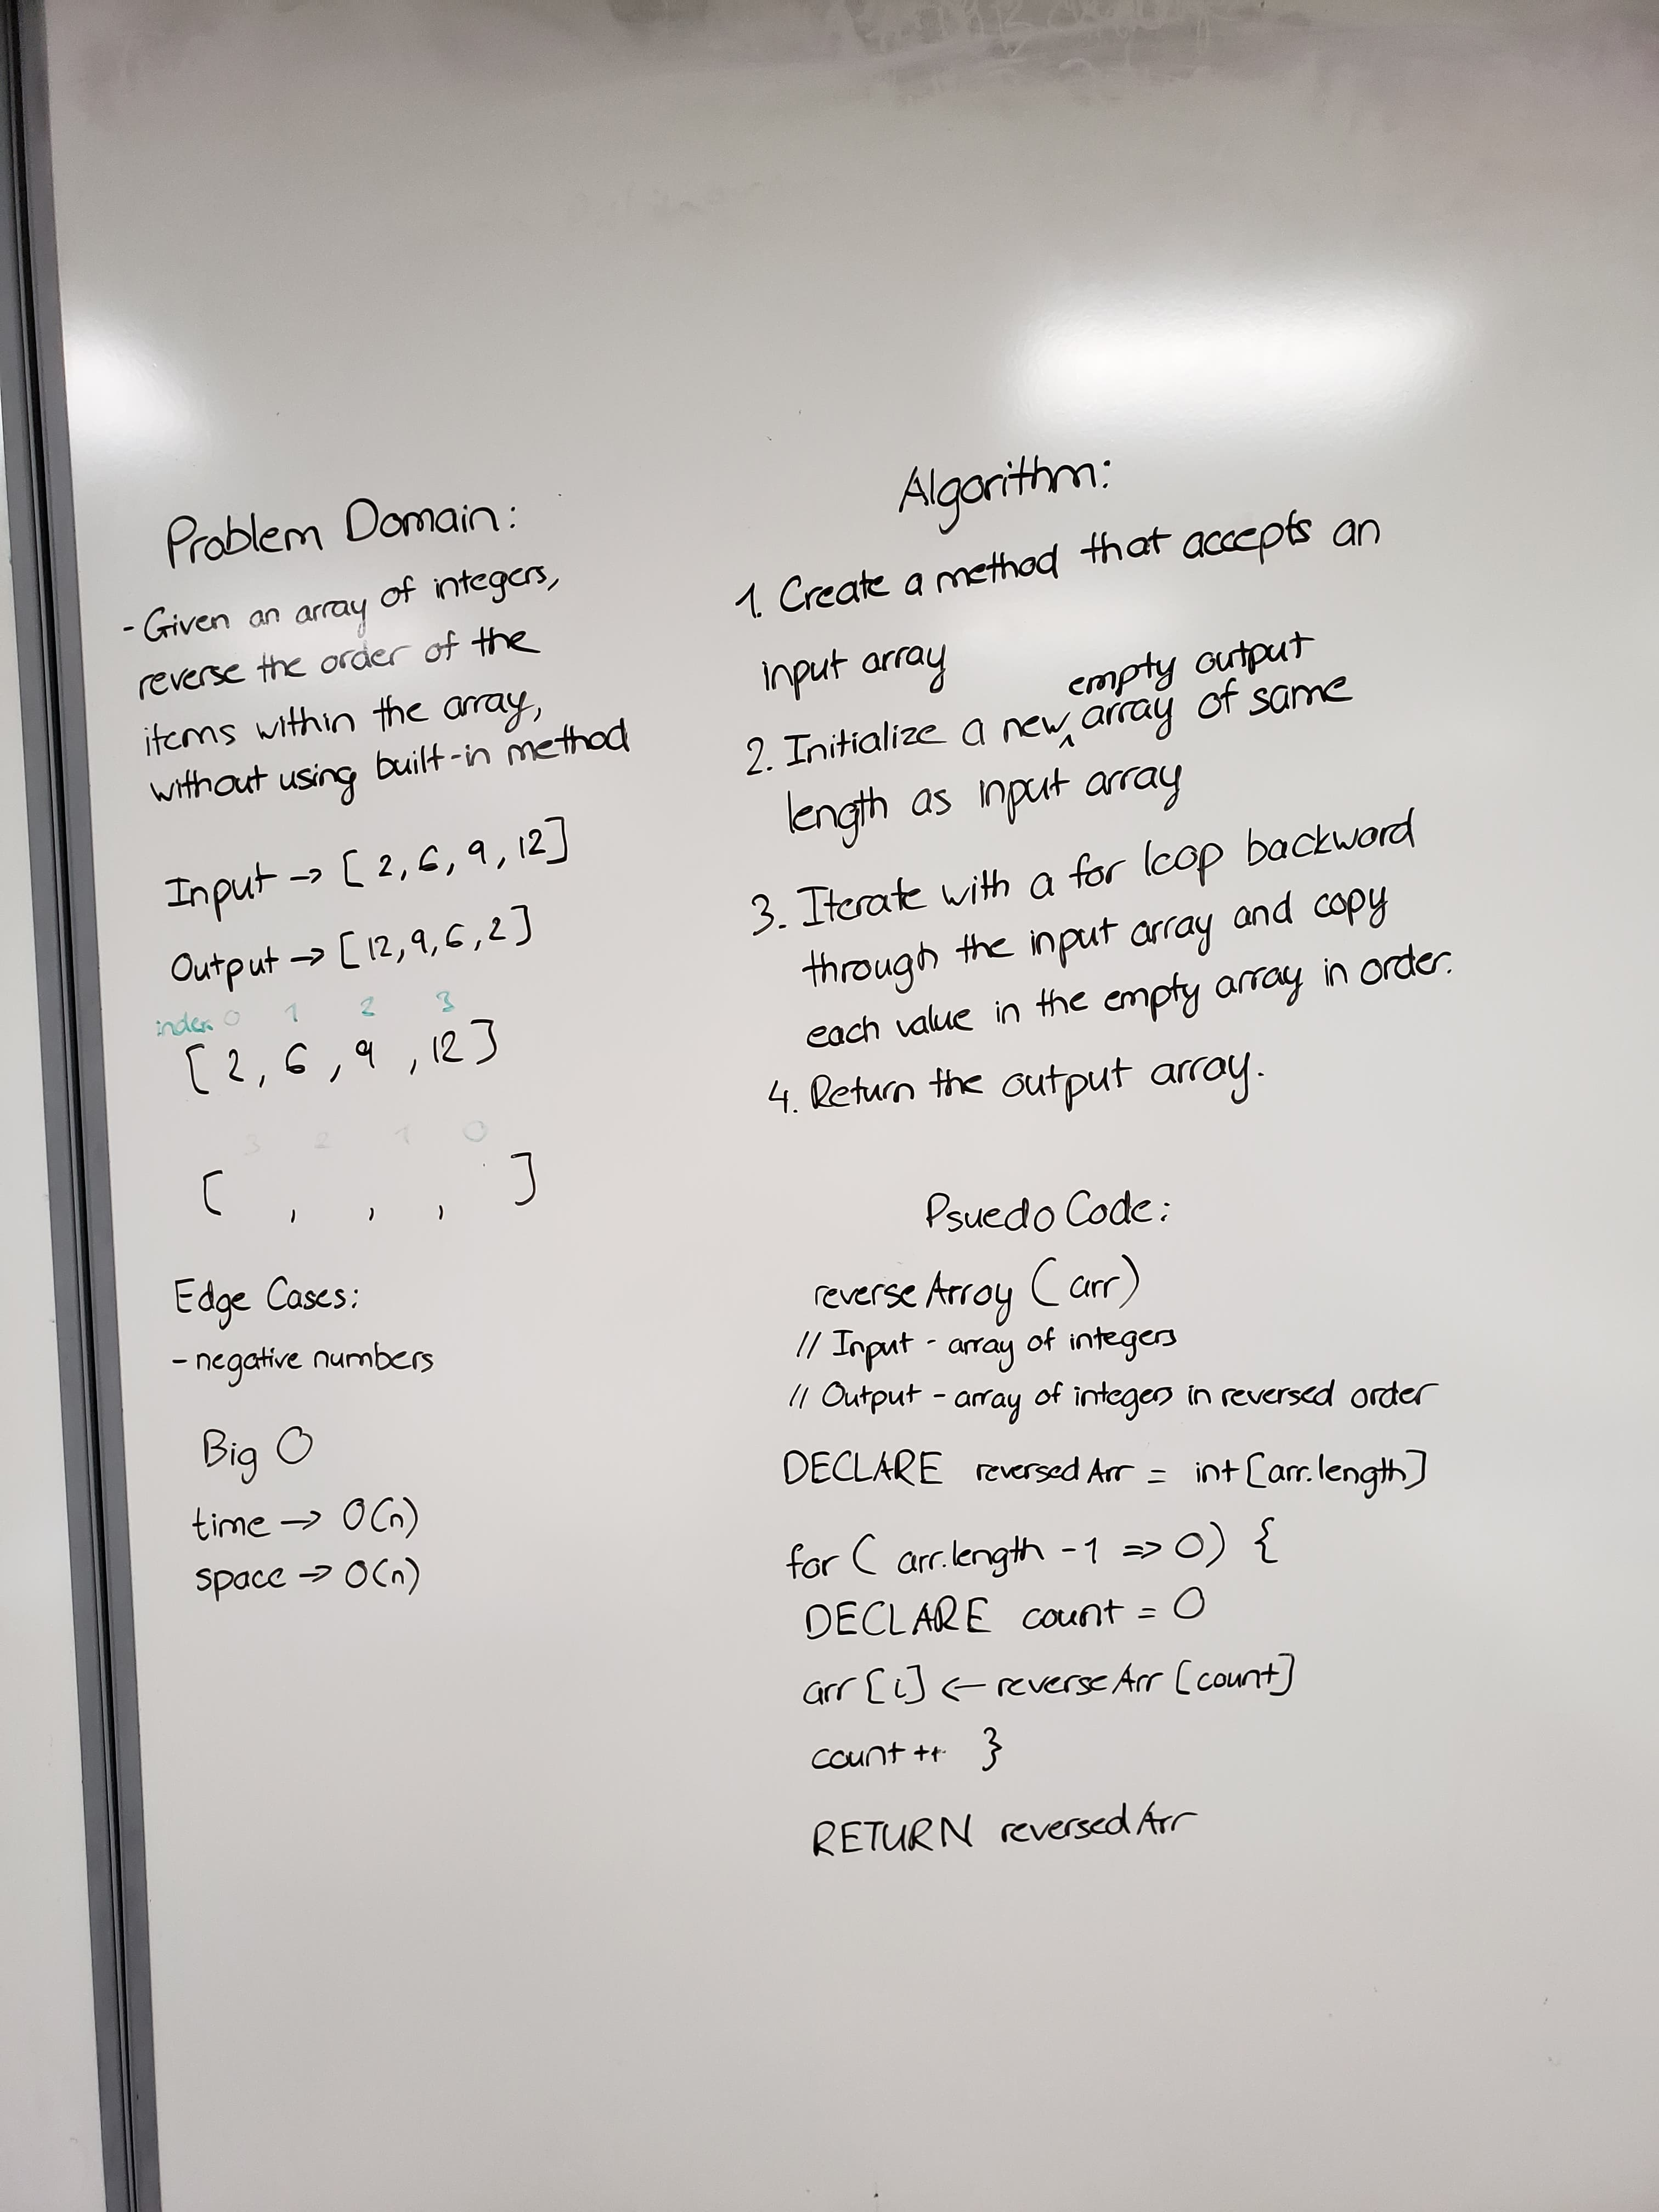 Problem Domain:
- Given an array of integers,
reverse the order of the
items within the array,
without using built-in method
Input -> [ 2, 6, 9, 12]
Output -> [ 12, 9, 6, 2]
index 0 1 2 3
[ 2, 6, 9, 12]
3 2 1 0
[ , , , ]
Edge Cases:
- negative numbers
Big O
time -> O(n)
space -> O(n)
Algorithm:
1. Create a method that accepts an
input array
empty output
2. Initialize a new ^ array of same
length as input array
3. Iterate with a for loop backword
through the input array and copy
each value in the empty array in order.
4. Return the output array.
Psuedo Code:
reverseArray (arr)
// Input - array of integers
// Output - array of integers in reversed order
DECLARE reversedArr = int[arr.length]
for ( arr.length - 1 => 0) {
DECLARE count = 0
arr [i] <- reverseArr [count]
count ++ }
RETURN reversedArr